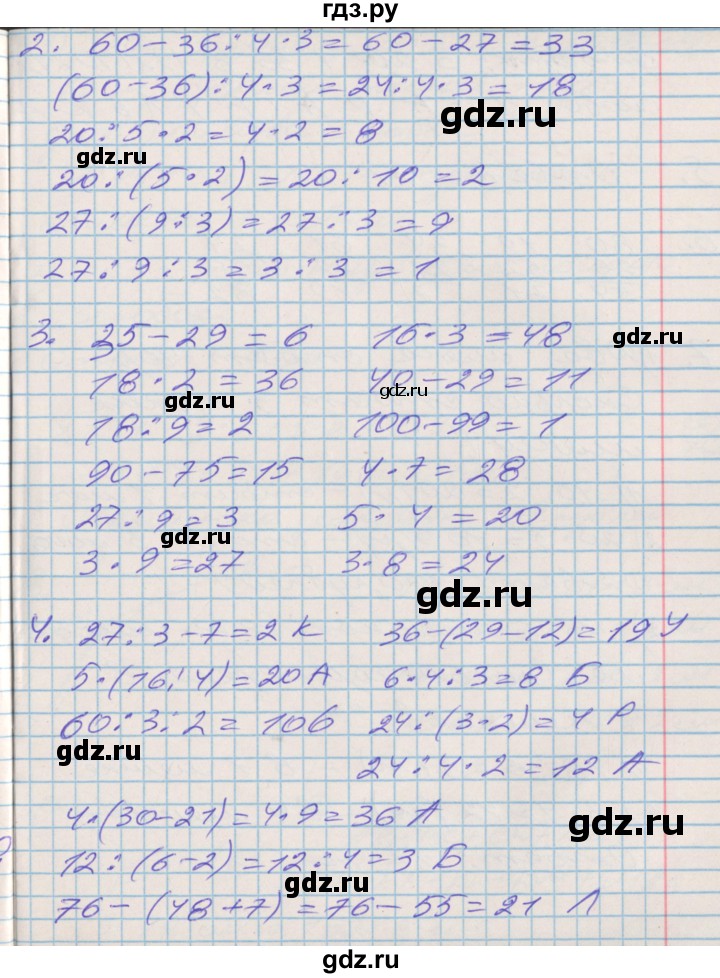 гдз.ру
2. 60-36:4·3=60-27=33
(60-36):4·3=24:4·3=18
gdz.ru
20:5·2=4·2=8
gdz.ru
20:(5·2)=20:10=2
27:(9:3)=27:3=9
27:9:3=3:3=1
3. 35-29=6 16·3=48
gdz.ru
18·2=36 40-29=11
gdz.ru gdz.ru
18:9=2 100-99=1
90-75=15 4·7=28
27:9=3 5·4=20
gdz.ru
3·9=27 3·8=24
gdz.ru
4. 27:3-7=2 К 36-(29-12)=19 У
5·(16:4)=20 А 6·4:3=8 Б
60:3:2=10б 24:(3·2)=4 Р
gdz.ru
24:4·2=12 А
4·(30-21)=4·9=36 А
gdz.ru
12:(6-2)=12:4=3 Б
gdz.ru
76-(48+7)=76-55=21 Л
gdz.ru